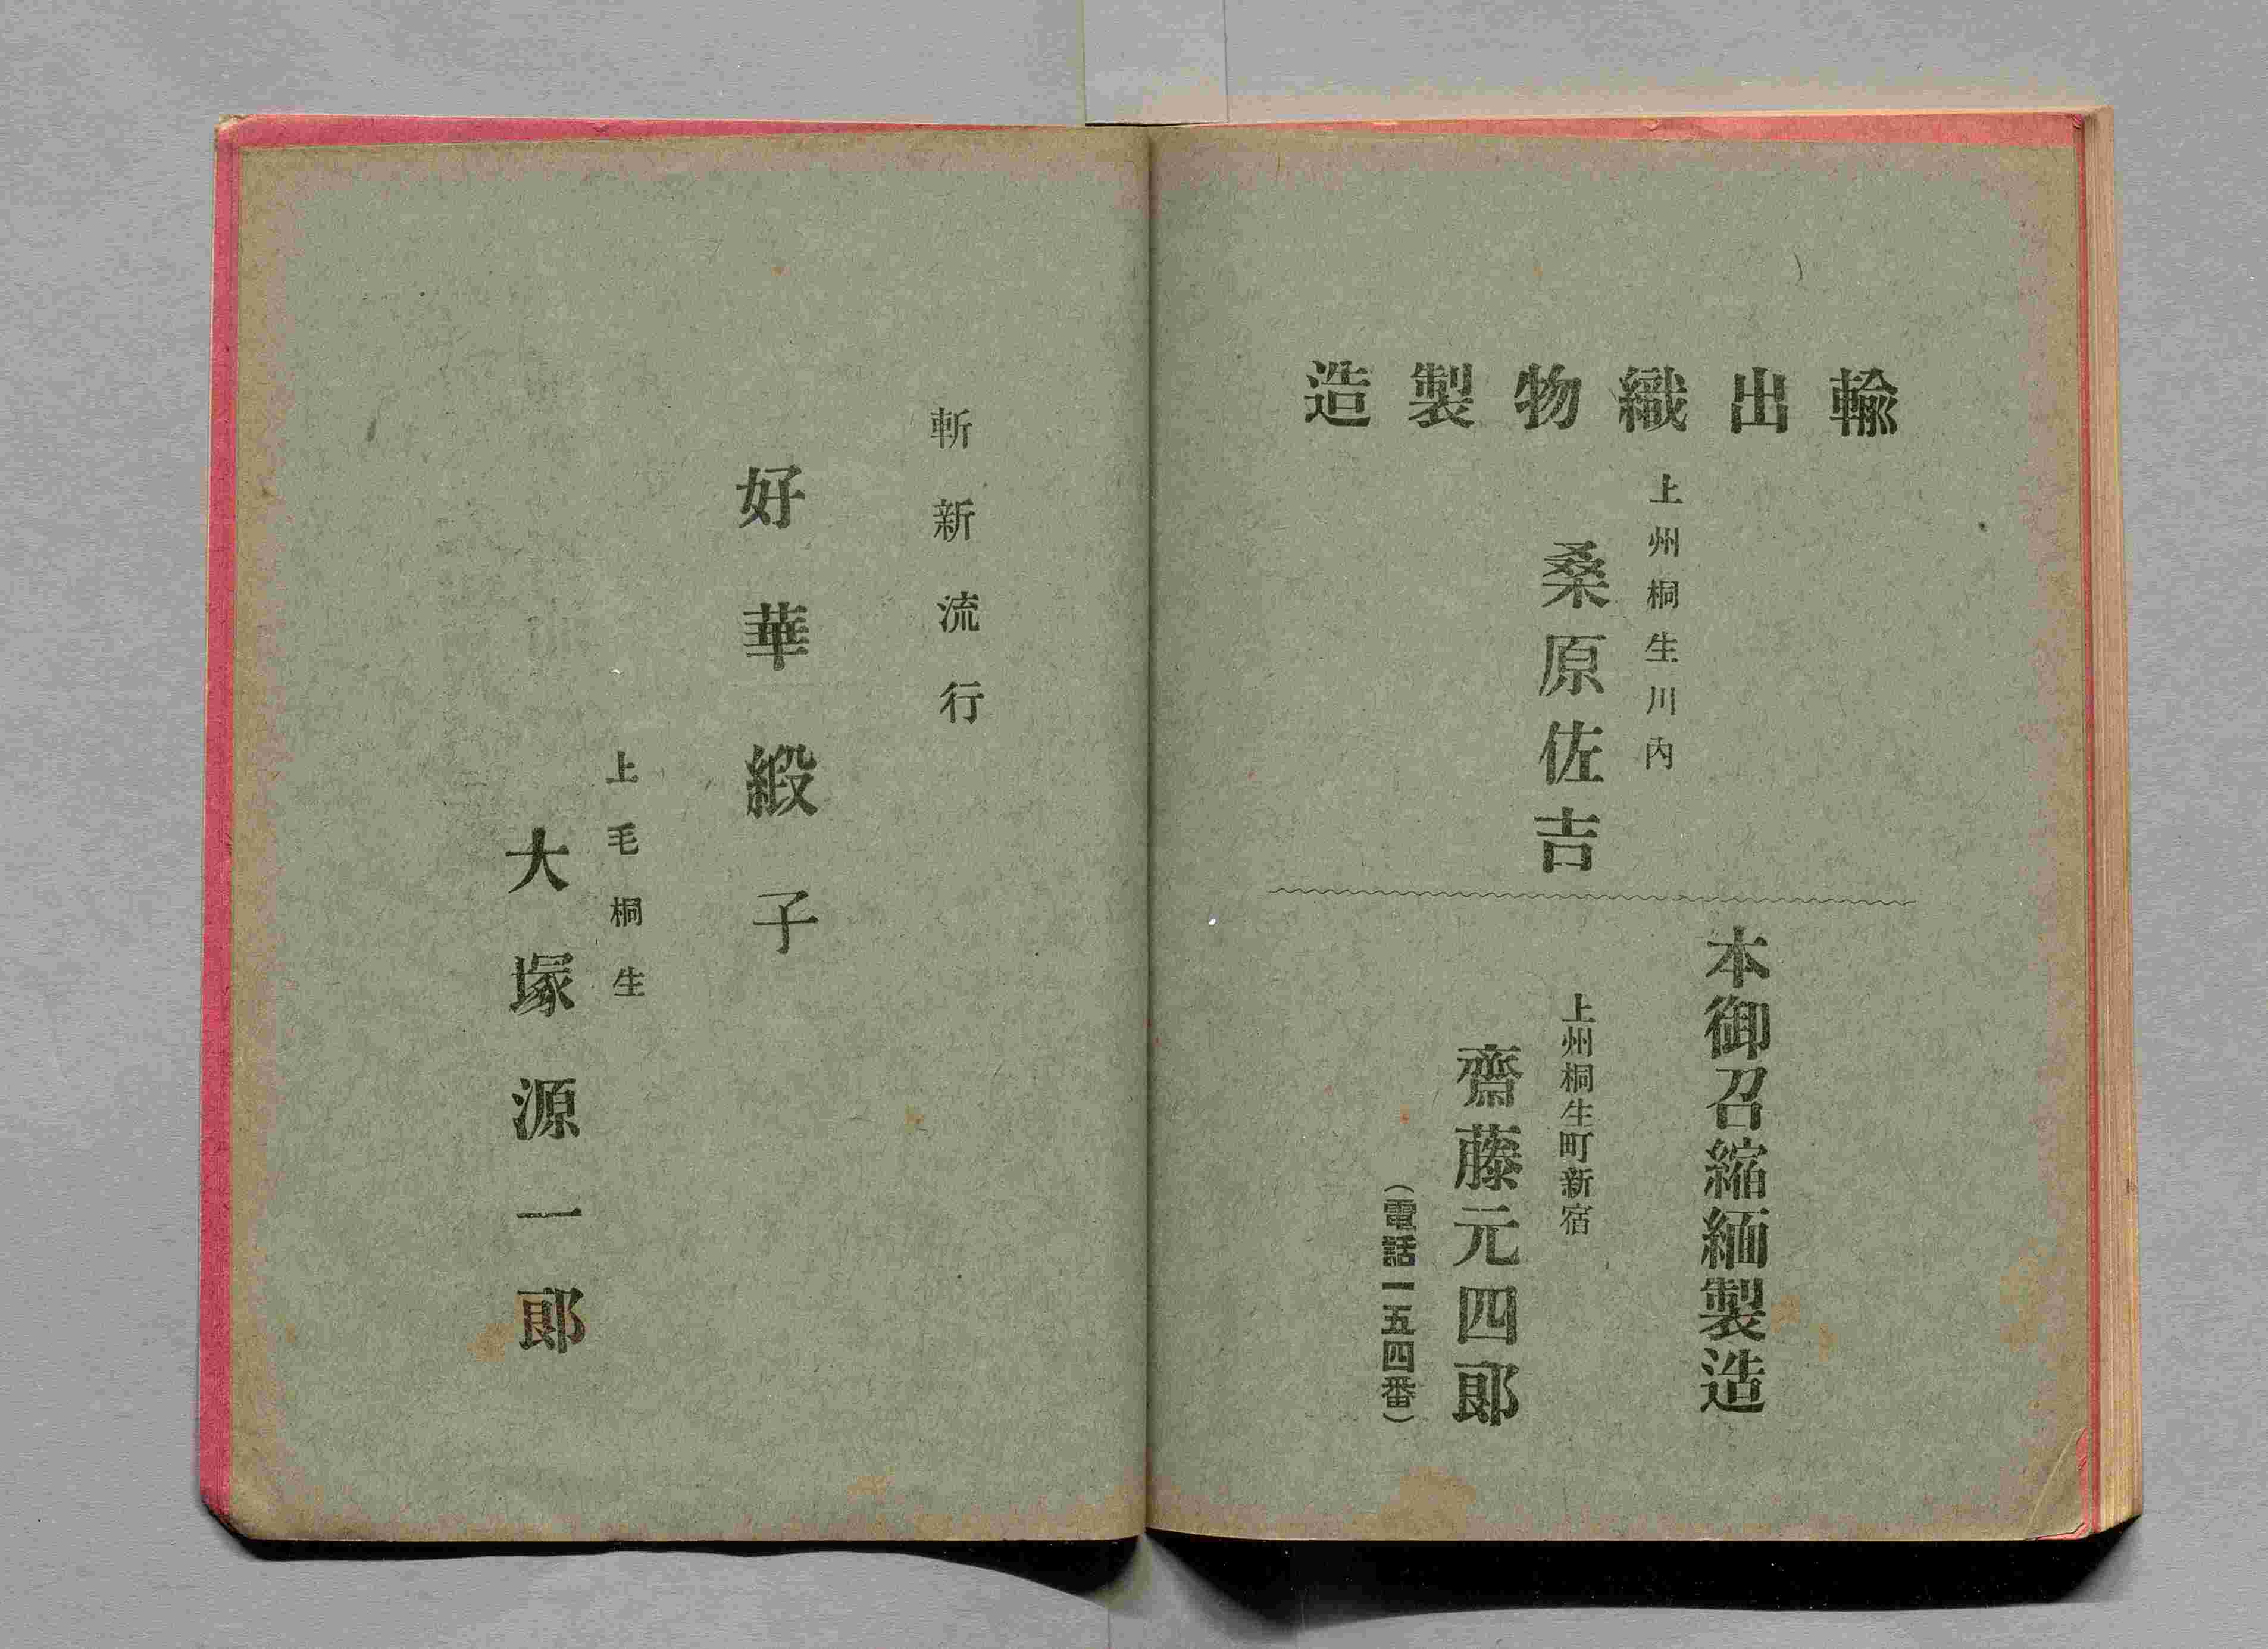 輸出織物製造
上州桐生川内
桑原佐吉
本御召縮緬製造
上州桐生町新宿
齋藤元四郎
（電話一五四番）
斬新流行
好華緞子
上毛桐生
大塚源一郎